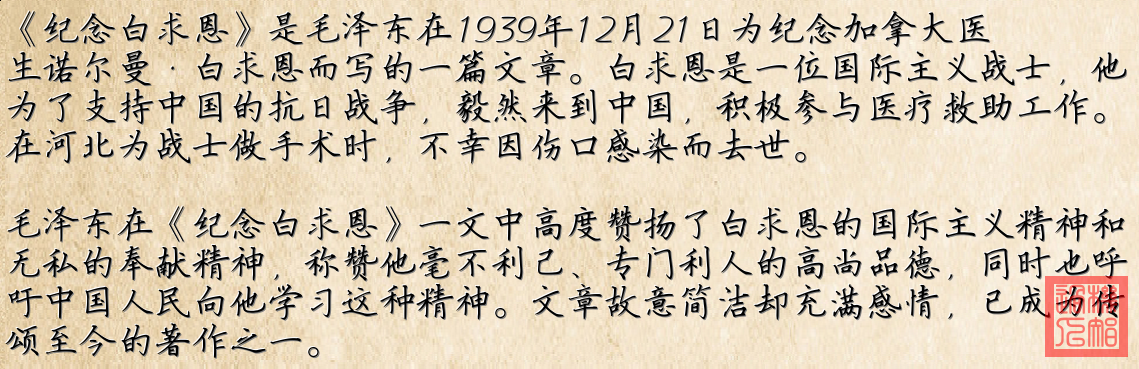 《纪念白求恩》是毛泽东在1939年12月21日为纪念加拿大医
生诺尔曼·白求恩而写的一篇文章。白求恩是一位国际主义战士，他
为了支持中国的抗日战争，毅然来到中国，积极参与医疗救助工作。
在河北为战士做手术时，不幸因伤口感染而去世。
毛泽东在《纪念白求恩》一文中高度赞扬了白求恩的国际主义精神和
无私的奉献精神，称赞他毫不利己、专门利人的高尚品德，同时也呼
吁中国人民向他学习这种精神。文章故意简洁却充满感情，已成为传
颂至今的著作之一。